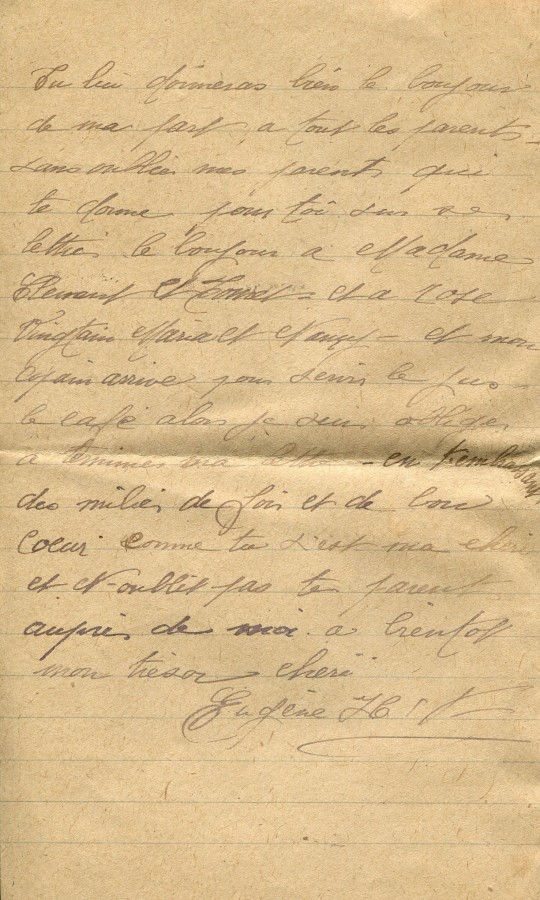 Tu lui donneras bien le bonjour
de ma part a tout les parents
sans oublier mes parents qui
te donne pour toi sur ses
lettres le bonjour a Madame
Clement et et a rose
Maria et Nancy - et mon
copain arrive pour servir le jus
le café alors je suis obliger
a terminer ma lettre - en t'embrassant
des milies de fois et de bon
coeur comme tu s'est ma cheri
et N-oublit-pas te parent
auprès de moi a bientot
mon trésor cheri
Eugène H